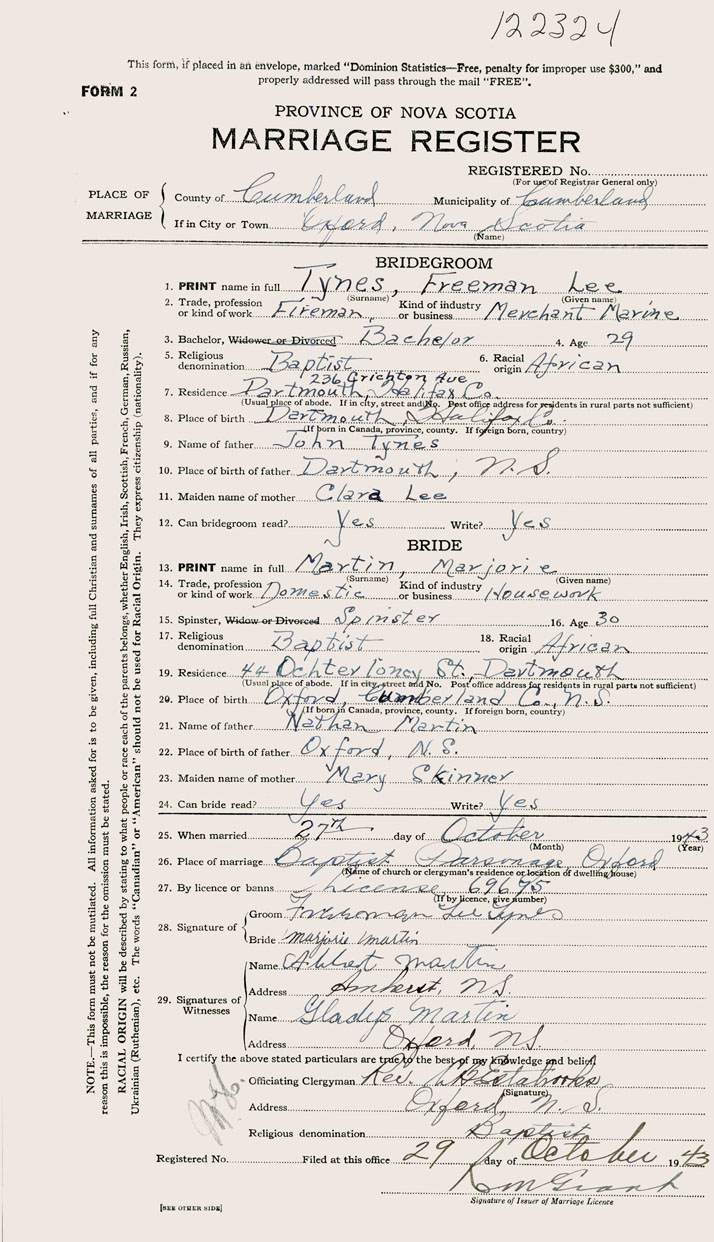 122324
This form, if placed in an envelope, marked "Dominion Statistics—Free, penalty for improper use $300," and
properly addressed will pass through the mail "FREE".
FORM 2
PROVINCE OF NOVA SCOTIA
MARRIAGE REGISTER
REGISTERED No.
(For use of Registrar General only)
PLACE OF MARRIAGE
County of Cumberland Municipality of Cumberland
If in City or Town Oxford, Nova Scotia
(Name)
BRIDEGROOM
1. PRINT name in full Tynes, Freeman Lee
(Surname) (Given name)
2. Trade, profession or kind of work Fireman, Kind of industry or business Merchant Marine
3. Bachelor, Widower or Divorced Bachelor 4. Age 29
5. Religious denomination Baptist 6. Racial origin African
236 Crichton Ave
7. Residence Dartmouth, Halifax Co.
(Usual place of abode. If in city, street and No. Post office address for residents in rural parts not sufficient)
8. Place of birth Dartmouth, Halifax Co.
(If born in Canada, province, county. If foreign born, country)
9. Name of father John Tynes
10. Place of birth of father Dartmouth, N.S.
11. Maiden name of mother Clara Lee
12. Can bridegroom read? Yes Write? Yes
BRIDE
13. PRINT name in full Martin, Marjorie
(Surname) (Given name)
14. Trade, profession or kind of work Domestic Kind of industry or business Housework
15. Spinster, Widow or Divorced Spinster 16. Age 30
17. Religious denomination Baptist 18. Racial origin African
19. Residence 44 Ochterloney St., Dartmouth
(Usual place of abode. If in city, street and No. Post office address for residents in rural parts not sufficient)
20. Place of birth Oxford, Cumberland Co., N.S.
(If born in Canada, province, county. If foreign born, country)
21. Name of father Nathan Martin
22. Place of birth of father Oxford, N.S.
23. Maiden name of mother Mary Skinner
24. Can bride read? Yes Write? Yes
25. When married 27th day of October 1943
(Month) (Year)
26. Place of marriage Baptist Parsonage Oxford
(Name of church or clergyman's residence or location of dwelling house)
27. By licence or banns License 69675
(If by licence, give number)
28. Signature of
Groom Freeman Lee Tynes
Bride marjorie martin
29. Signatures of Witnesses
Name Albert Martin
Address Amherst, NS.
Name Gladys Martin
Address Oxford, NS.
I certify the above stated particulars are true to the best of my knowledge and belief.
Officiating Clergyman Rev. Estabrooks
(Signature)
Address Oxford, N.S.
Religious denomination Baptist
Registered No. Filed at this office 29 day of October 1943
Signature of Issuer of Marriage Licence
[SEE OTHER SIDE]
NOTE.—This form must not be mutilated. All information asked for is to be given, including full Christian and surnames of all parties, and if for any
reason this is impossible, the reason for the omission must be stated.
RACIAL ORIGIN will be described by stating to what people or race each of the parents belongs, whether English, Irish, Scottish, French, German, Russian,
Ukrainian (Ruthenian), etc. The words "Canadian" or "American" should not be used for Racial Origin. They express citizenship (nationality).